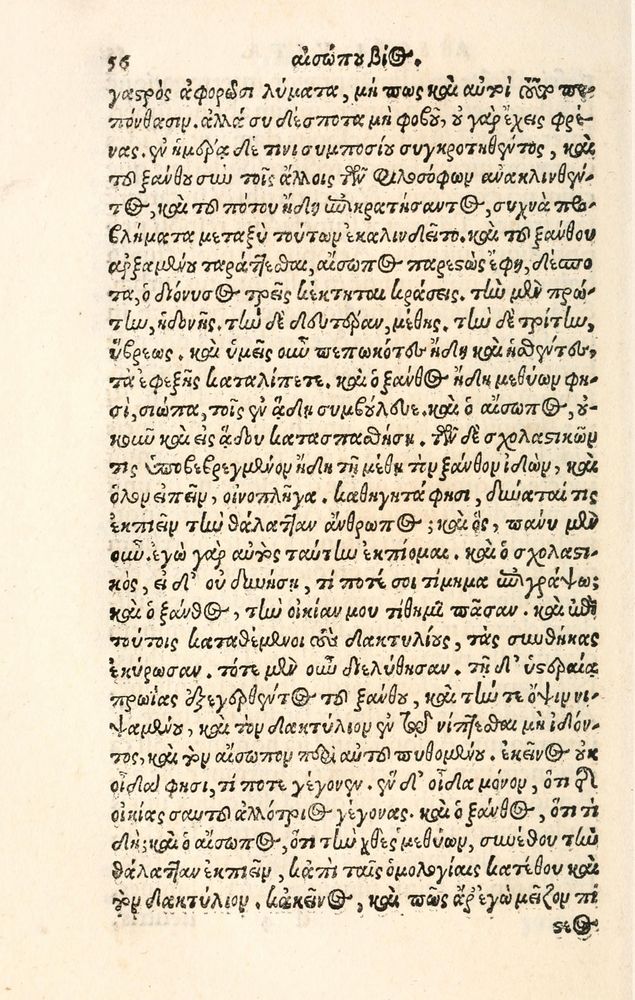 56 αἰσώπου βίος.
γαςρὸς ἀφορῶσι λύματα, μή πως καὶ αὐτοὶ τοῦτο πε-
πόνθασιν. ἀλλὰ σὺ δέσποτα μὴ φοβοῦ, οὐ γὰρ ἔχεις φρέ-
νας. ἐν ἡμέρᾳ δέ τινι συμποσίου συγκροτηθέντος, καὶ
τοῦ ξάνθου σὺν τοῖς ἄλλοις τῶν φιλοσόφων ἀνακλιθέν-
τος, καὶ τοῦ πότου ἤδη ἐπικρατήσαντος, συχνὰ προ-
βλήματα μεταξὺ τούτων ἐκαλινδεῖτο. καὶ τοῦ ξάνθου
ἀρξαμένου ταράττεσθαι, αἴσωπος παρεςὼς ἔφη, δέσπο
τα, ὁ διόνυσος τρεῖς κέκτηται κράσεις. τὴν μὲν πρώ-
την, ἡδονῆς. τὴν δὲ δευτέραν, μέθης. τὴν δὲ τρίτην,
ὕβρεως. καὶ ὑμεῖς οὖν πεπωκότες ἤδη καὶ ἡσθέντες,
τὰ ἐφεξῆς καταλίπετε. καὶ ὁ ξάνθος ἤδη μεθύων φη-
σὶ, σιώπα, τοῖς ἐν ᾅδη συμβούλευε. καὶ ὁ αἴσωπος, οὐ-
κοιοῦν καὶ εἰς ᾅδου κατασπασθήσῃ. τῶν δὲ σχολαςικῶν
τις ὑποβεβρεγμένον ἤδη τῇ μέθῃ τὸν ξάνθον ἰδὼν, καὶ
ὅλον εἰπεῖν, οἰνοπλῆγα. καθηγητά φησι, δύναταί τις
ἐκπιεῖν τὴν θάλατταν ἄνθρωπος; καὶ ὃς, πάνυ μὲν
οὖν. ἐγὼ γὰρ αὐτὸς ταύτην ἐκπίομαι. καὶ ὁ σχολαςι-
κὸς, εἰ δ' οὐ δυνήσῃ, τί ποτέ σοι τίμημα ἐπιγράψως
καὶ ὁ ξάνθος, τὴν οἰκίαν μου τίθημι πᾶσαν. καὶ ἐπὶ
τούτοις καταθέμενοι τοὺς δακτυλίους, τὰς συνθήκας
ἐκύρωσαν. τότε μὲν οὖν διελύθησαν. τῇ δ' ὑςεραίᾳ
πρωΐας ἐξεγερθέντος τοῦ ξάνθου, καὶ τήν τε ὄψιν νι-
ψαμένου, καὶ τὸν δακτύλιον ἐν τῷ νίπτεσθαι μὴ ἰδόν-
τος, καὶ τὸν αἴσωπον περὶ αὐτοῦ πυθομένου. ἐκεῖνος οὐκ
οἶδα φησι, τί ποτε γέγονεν. ἓν δ' οἶδα μόνον, ὅτι τῆς
οἰκίας σαυτοῦ ἀλλότριος γέγονας. καὶ ὁ ξάνθος, ὅτι τί
δή; καὶ ὁ αἴσωπος, ὅτι τὴν χθὲς μεθύων, συνέθου τὴν
θάλατταν ἐκπιεῖν, κἀπὶ ταῖς ὁμολογίαις κατέθου καὶ
τὸν δακτύλιον. κἀκεῖνος, καὶ πῶς ἄρ' ἐγὼ μεῖζον πί
ςεος